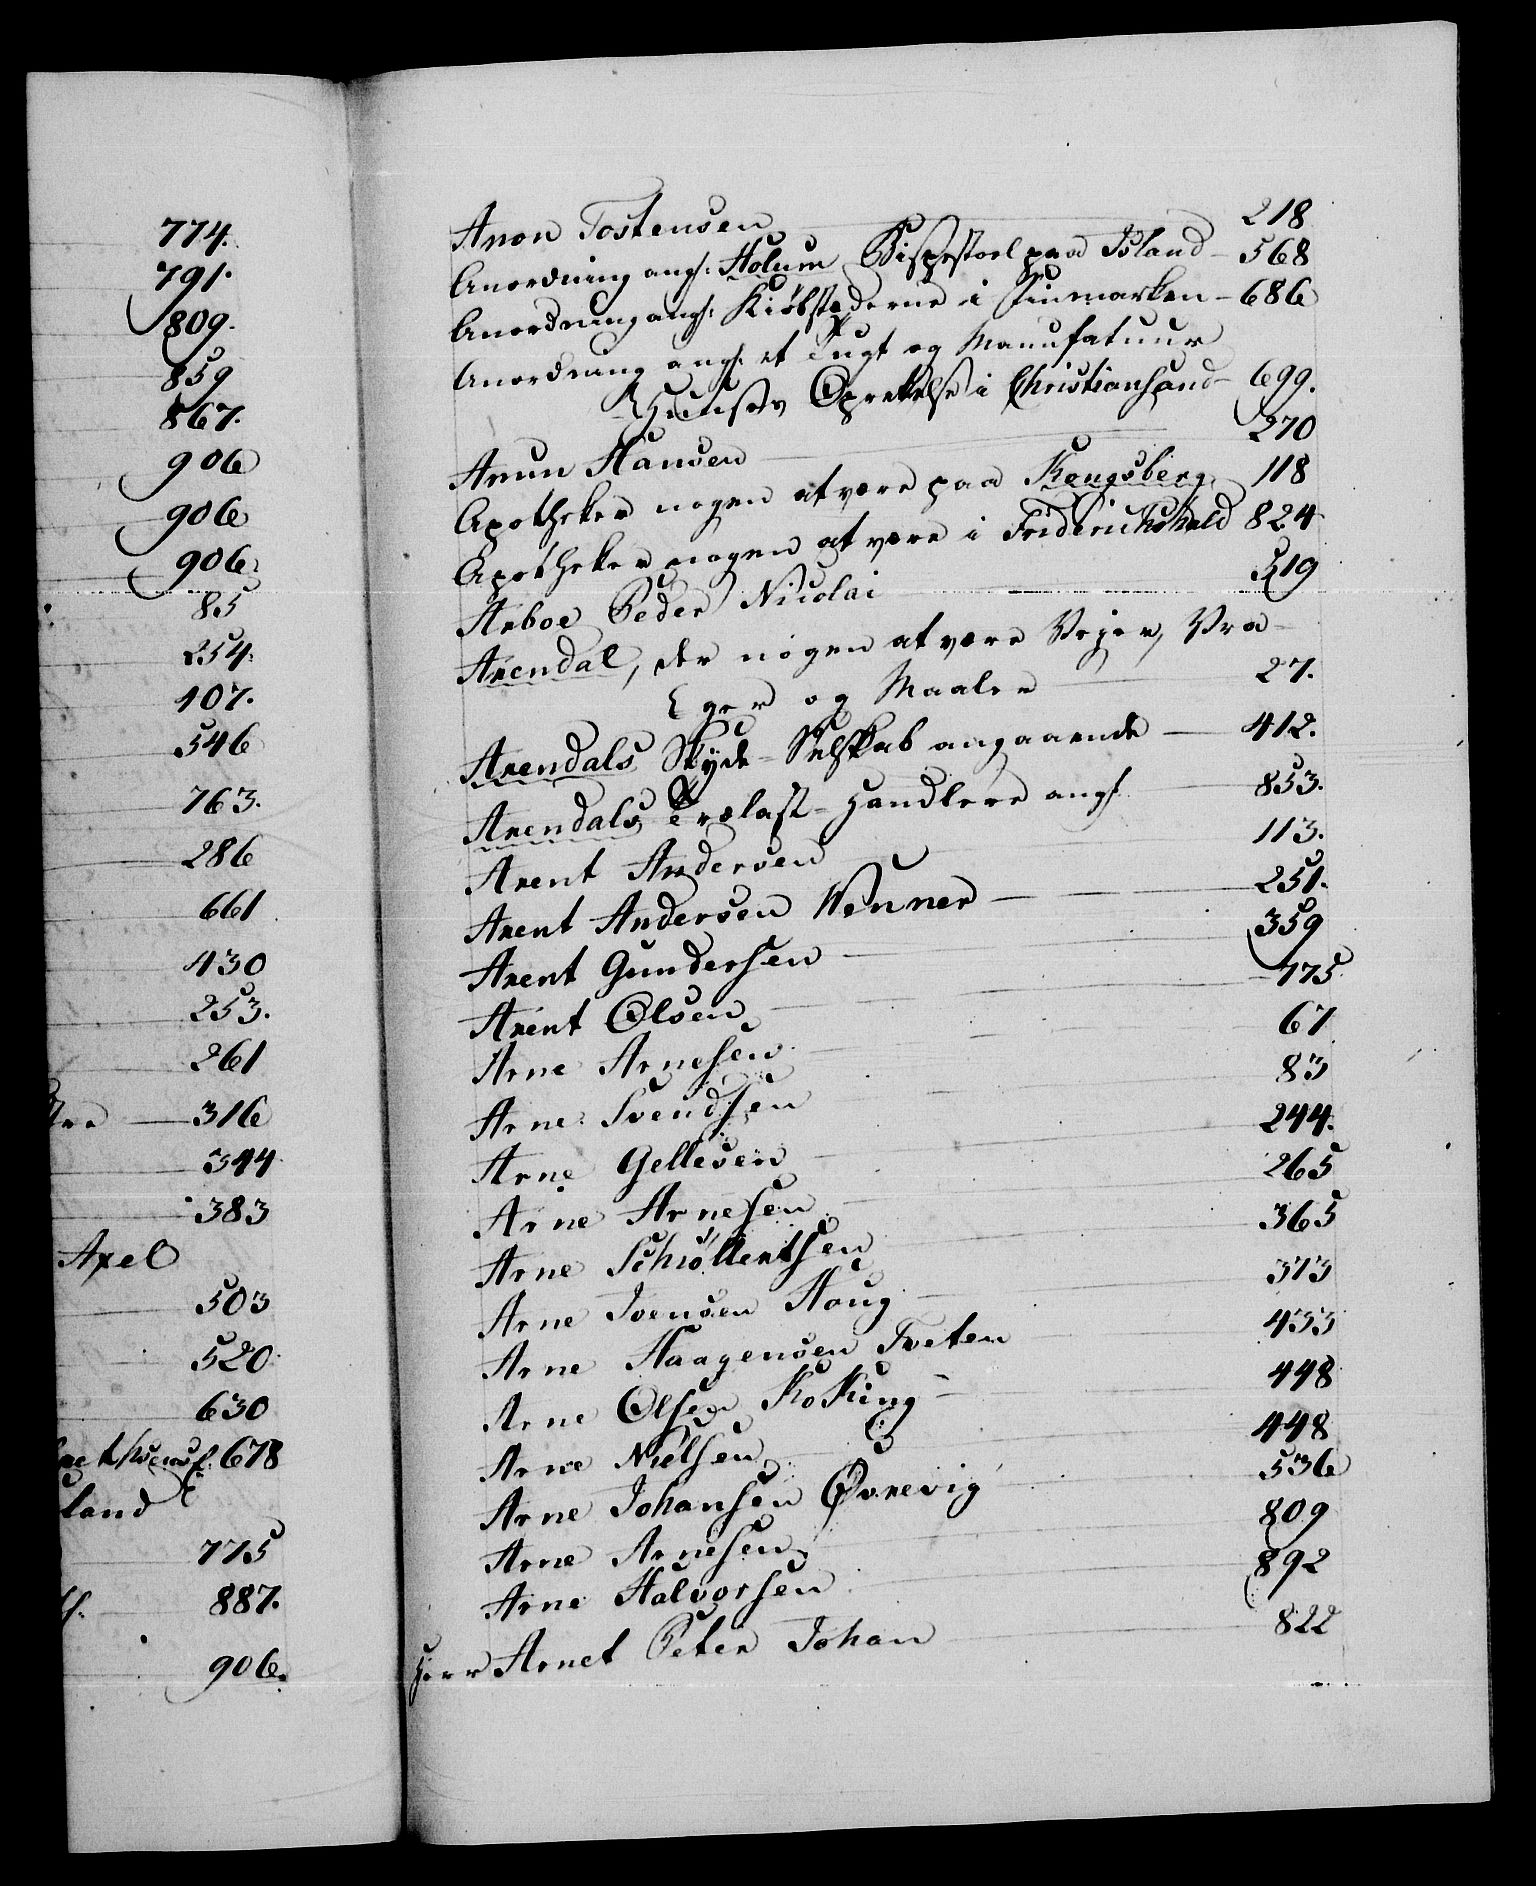 774.
791.
809.
859
867.
906
906
906.
85
254.
407.
546
763.
286
661
430
253.
261
316
344
383
Axel
503
520
630
678
land
775
887.
906.
Anon Tostensen 218
Anordning angl: Holum Bispestoel paa Island - 568
Anordning angl: Kiøbstæderne i Finmarken - 686
Anordning angl: et Tugt og Manufatuur
Huuses Oprettelse i Christiansand - 699.
Anun Hansen 270
Apotheker nogen at være paa Kongsberg 118
Apotheker nogen at være i Friderichshald 824
Arboe Peder Nicolai 519
Arendal, der nogen at være Vejer, Vra-
ger og Maaler 27.
Arendals Skyde-Selskab angaaende - 412.
Arendals Trælast-Handlere angl. 853.
Arent Andersen 113.
Arent Andersen Wenner 251.
Arent Gundersen 359
Arent Olsen 775
Arne Arnesen 67
Arne Svendsen 83
Arne Gellesen 244.
Arne Arnesen 265
Arne Schiøllertsen 365
Arne Ivensen Haug 373
Arne Haagensen Tveten 433
Arne Olsen Kokting 448
Arne Nielsen 448
Arne Johansen Øvrevig 536
Arne Arnesen 809
Arne Halvorsen 892
Herr Arnet Peter Johan 822